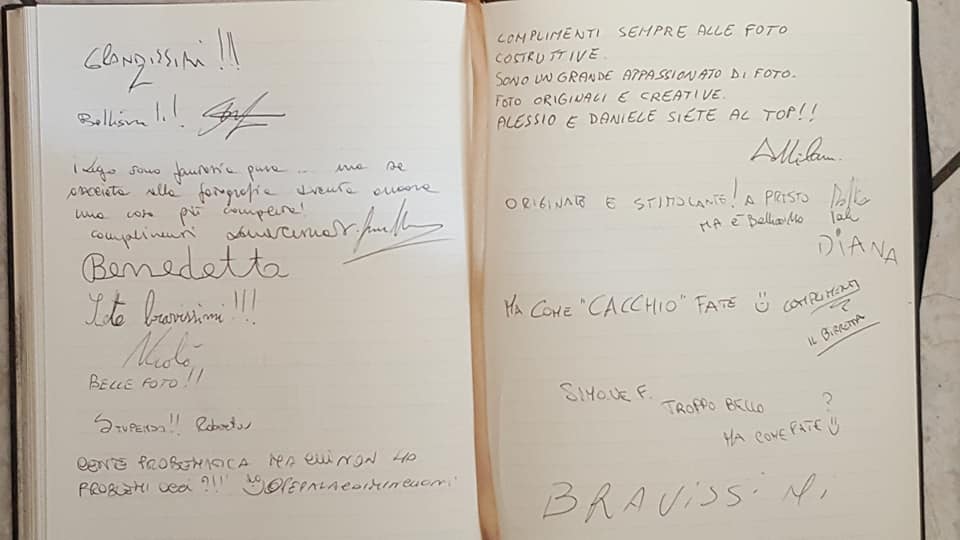 GRANDISSIMI!!!
Bellissimi!!
I Lego sono fantasia pura ... ma se
associata alla fotografia diventa ancora
una cosa più completa!
complimenti
Benedetta
Siete bravissimi!!!
Nicolò
BELLE FOTO!!
STUPENDO!! Roberto
GENTE PROBLEMATICA MA CHI NON HA
PROBLEMI OGGI ?!!!
COMPLIMENTI SEMPRE ALLE FOTO
COSTRUTTIVE.
SONO UN GRANDE APPASSIONATO DI FOTO.
FOTO ORIGINALI E CREATIVE.
ALESSIO E DANIELE SIETE AL TOP!!
ORIGINALE E STIMOLANTE! A PRESTO
MA È Bellissimo
DIANA
MA COME "CACCHIO" FATE COMPLIMENTI
IL BIRRETTA
SIMONE F.
TROPPO BELLO
MA COME FATE?
BRAVISSIMI